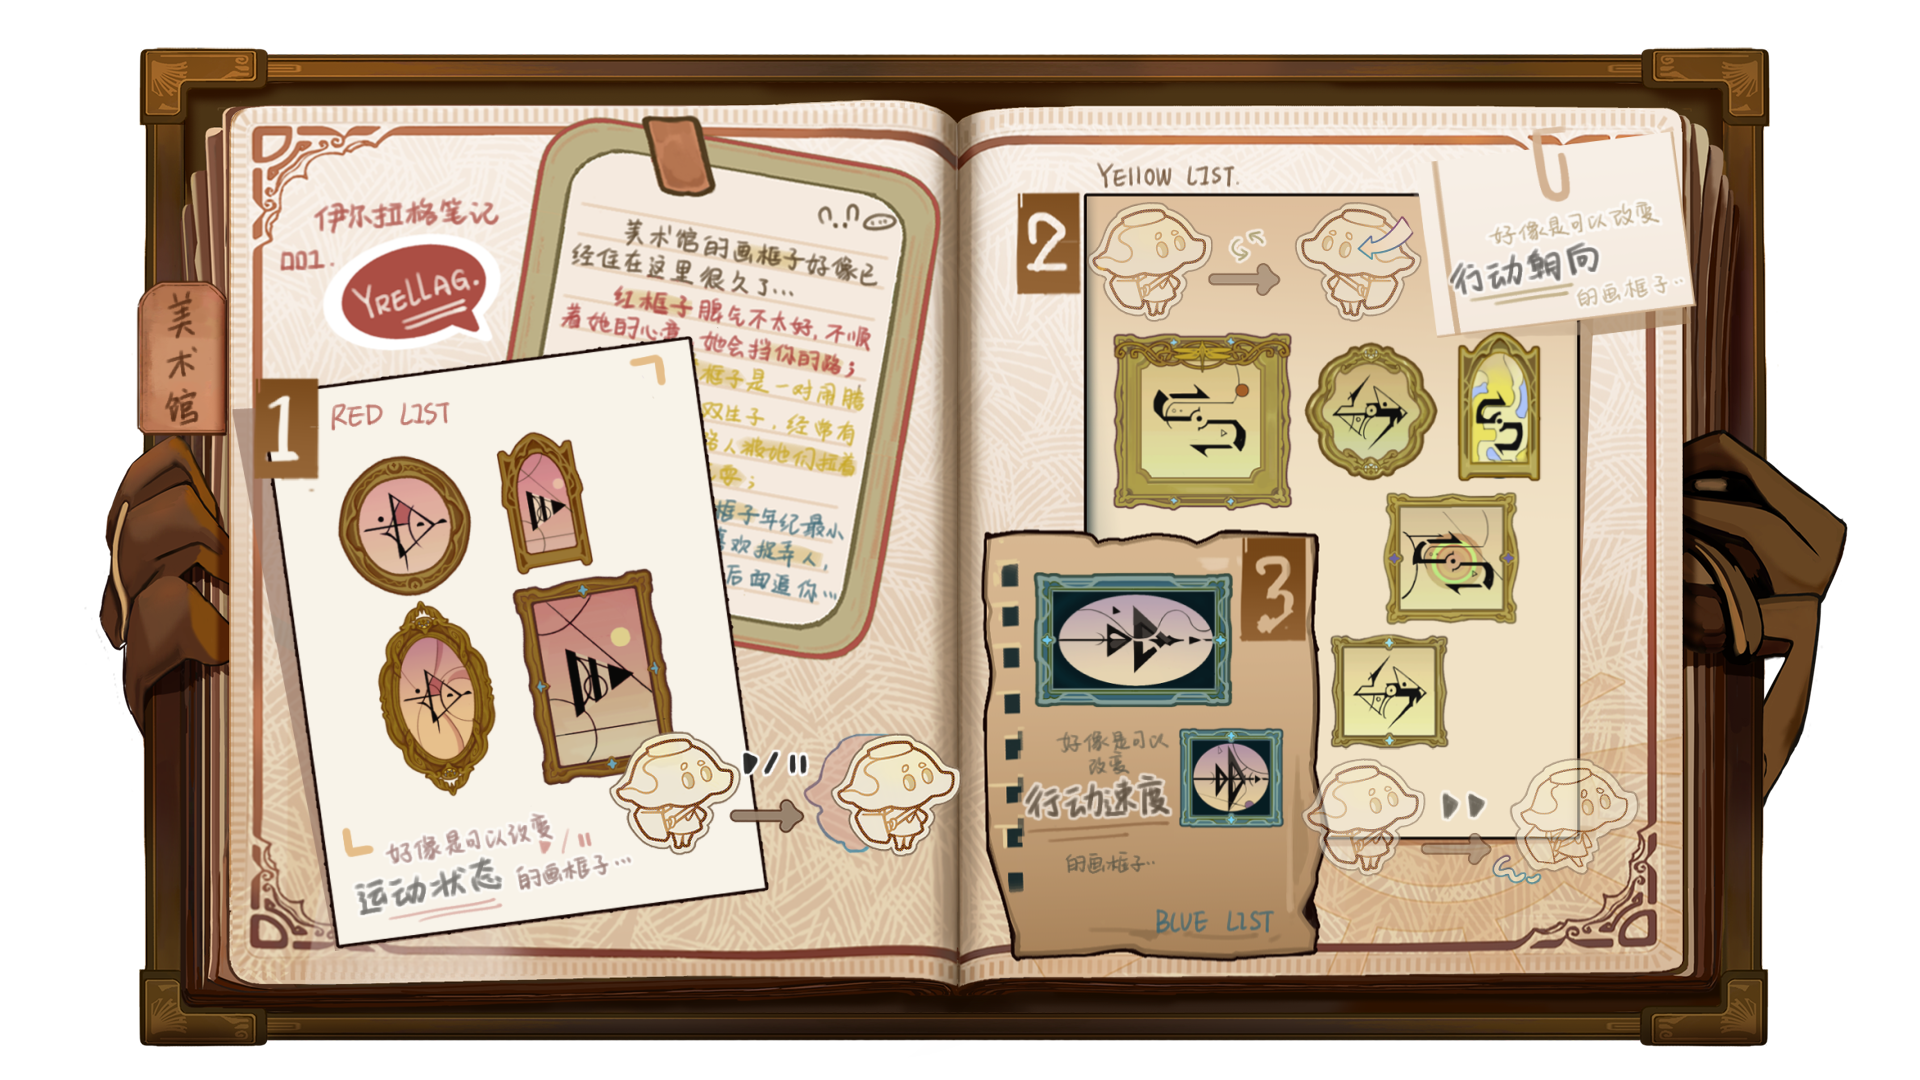 美术馆
伊尔拉格笔记
001.
YRELLAG.
美术馆的画框子好像已
经住在这里很久了...
红框子脾气不太好,不顺
着她的心意 她会挡你的路;
框子是一对闹腾
双生子,经常有
路人被她们拉着
框子年纪最小
喜欢捉弄人,
后面追你...
1
RED LIST
好像是可以改变
运动状态 的画框子...
2
YELLOW LIST.
好像是可以改变
行动朝向
的画框子..
3
好像是可以
改变
行动速度
的画框子..
BLUE LIST